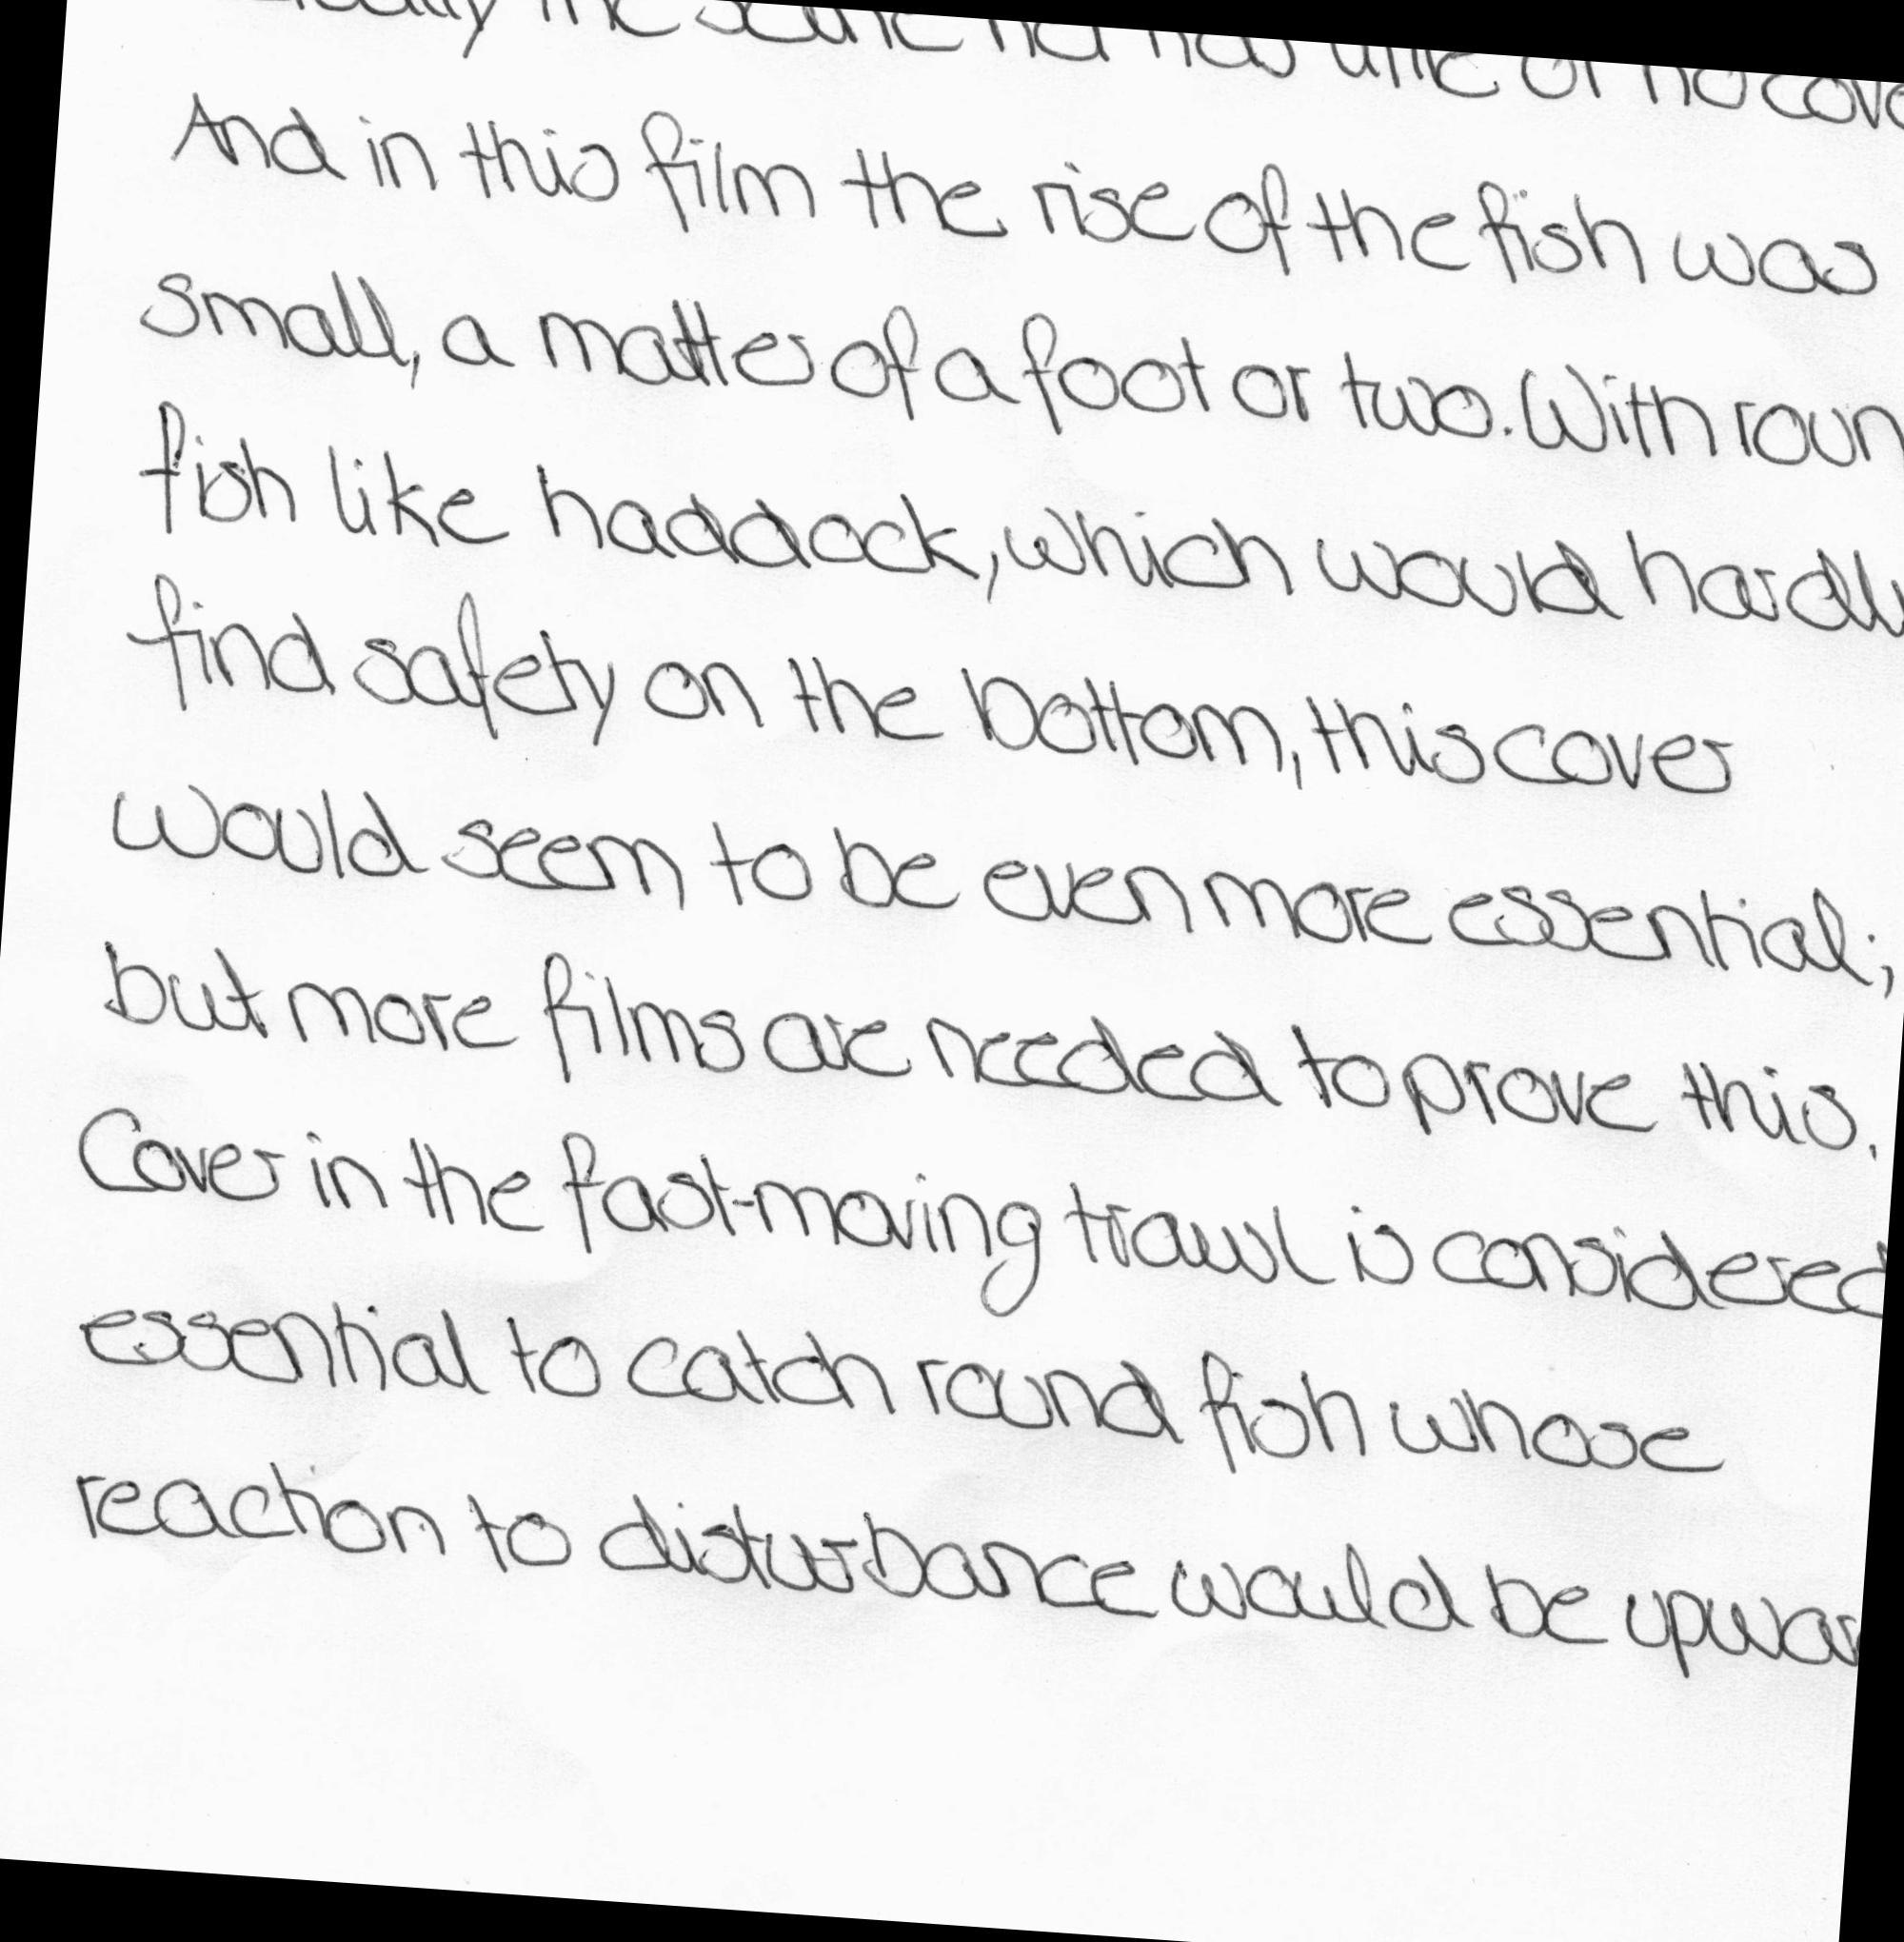 the seine net has little or no cove
And in this film the rise of the fish was
small, a matter of a foot or two. With roun
fish like haddock, which would hardly
find safety on the bottom, this cover
would seem to be even more essential;
but more films are needed to prove this.
Cover in the fast-moving trawl is considered
essential to catch round fish whose
reaction to disturbance would be upwar